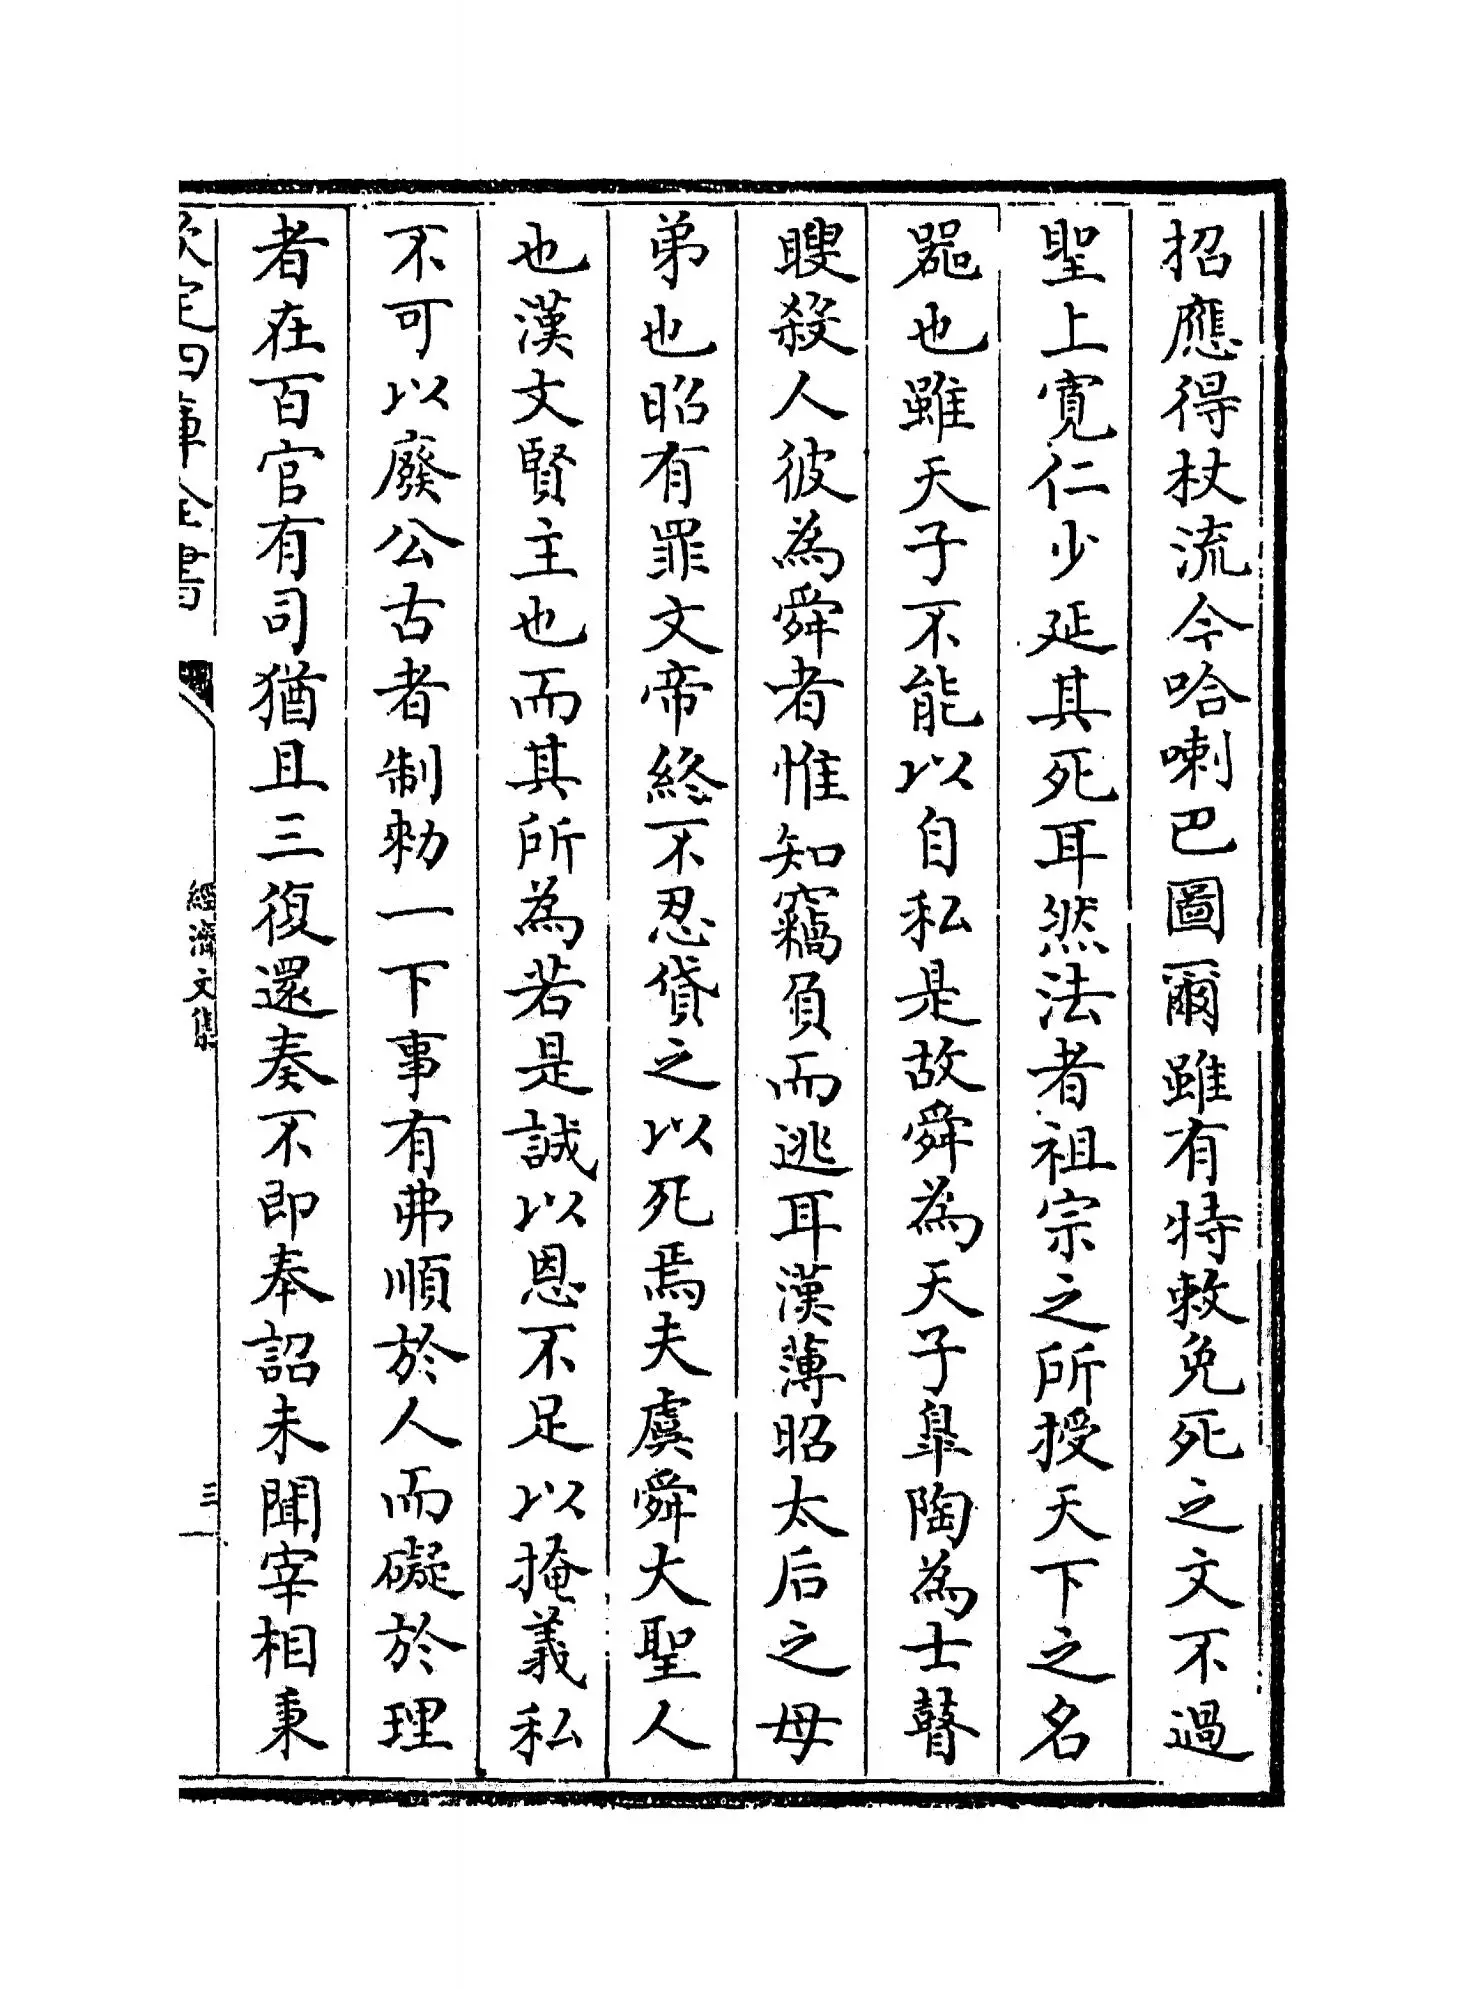 招應得杖流今哈喇巴圖爾雖有特敕免死之文不過
聖上寛仁少延其死耳然法者祖宗之所授天下之名
器也雖天子不能以自私是故舜為天子臯陶為士瞽
瞍殺人彼為舜者惟知竊負而逃耳漢薄昭太后之母
弟也昭有罪文帝終不忍貸之以死焉夫虞舜大聖人
也漢文賢主也而其所為若是誠以恩不足以掩義私
不可以廢公古者制勑一下事有弗順於人而礙於理
者在百官有司猶且三復還奏不即奉詔未聞宰相秉
欽定四庫全書
經濟文集
三